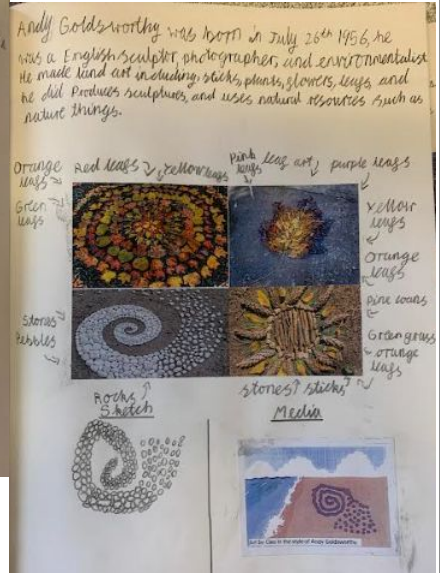 Andy Goldsworthy was born in July 26th 1956, he
was a English sculptor, photographer, and environmentalist
He made land art including, sticks, plants, flowers, leafs, and
he did Produces sculptures, and uses natural resources such as
nature things.
Orange leafs
Red leafs
Yellow leafs
Pink leafs
leaf art
purple leafs
Green leafs
Yellow leafs
Orange leafs
Pine coans
Stones
Pebbles
Green grass
orange leafs
Rocks
stones
sticks
Sketch
Media
Art by Cleo in the style of Andy Goldsworthy.